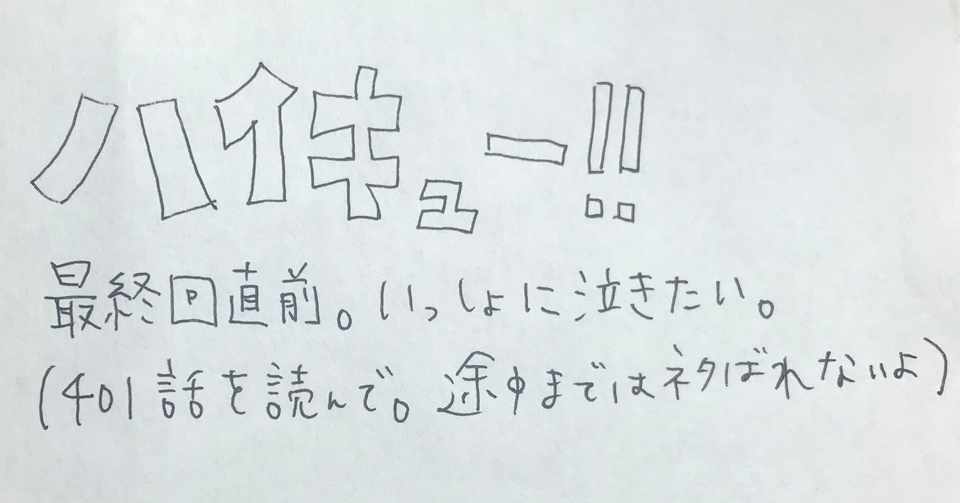 ハイキュー!!
最終回直前。いっしょに泣きたい。
(401話を読んで。途中まではネタばれないよ)